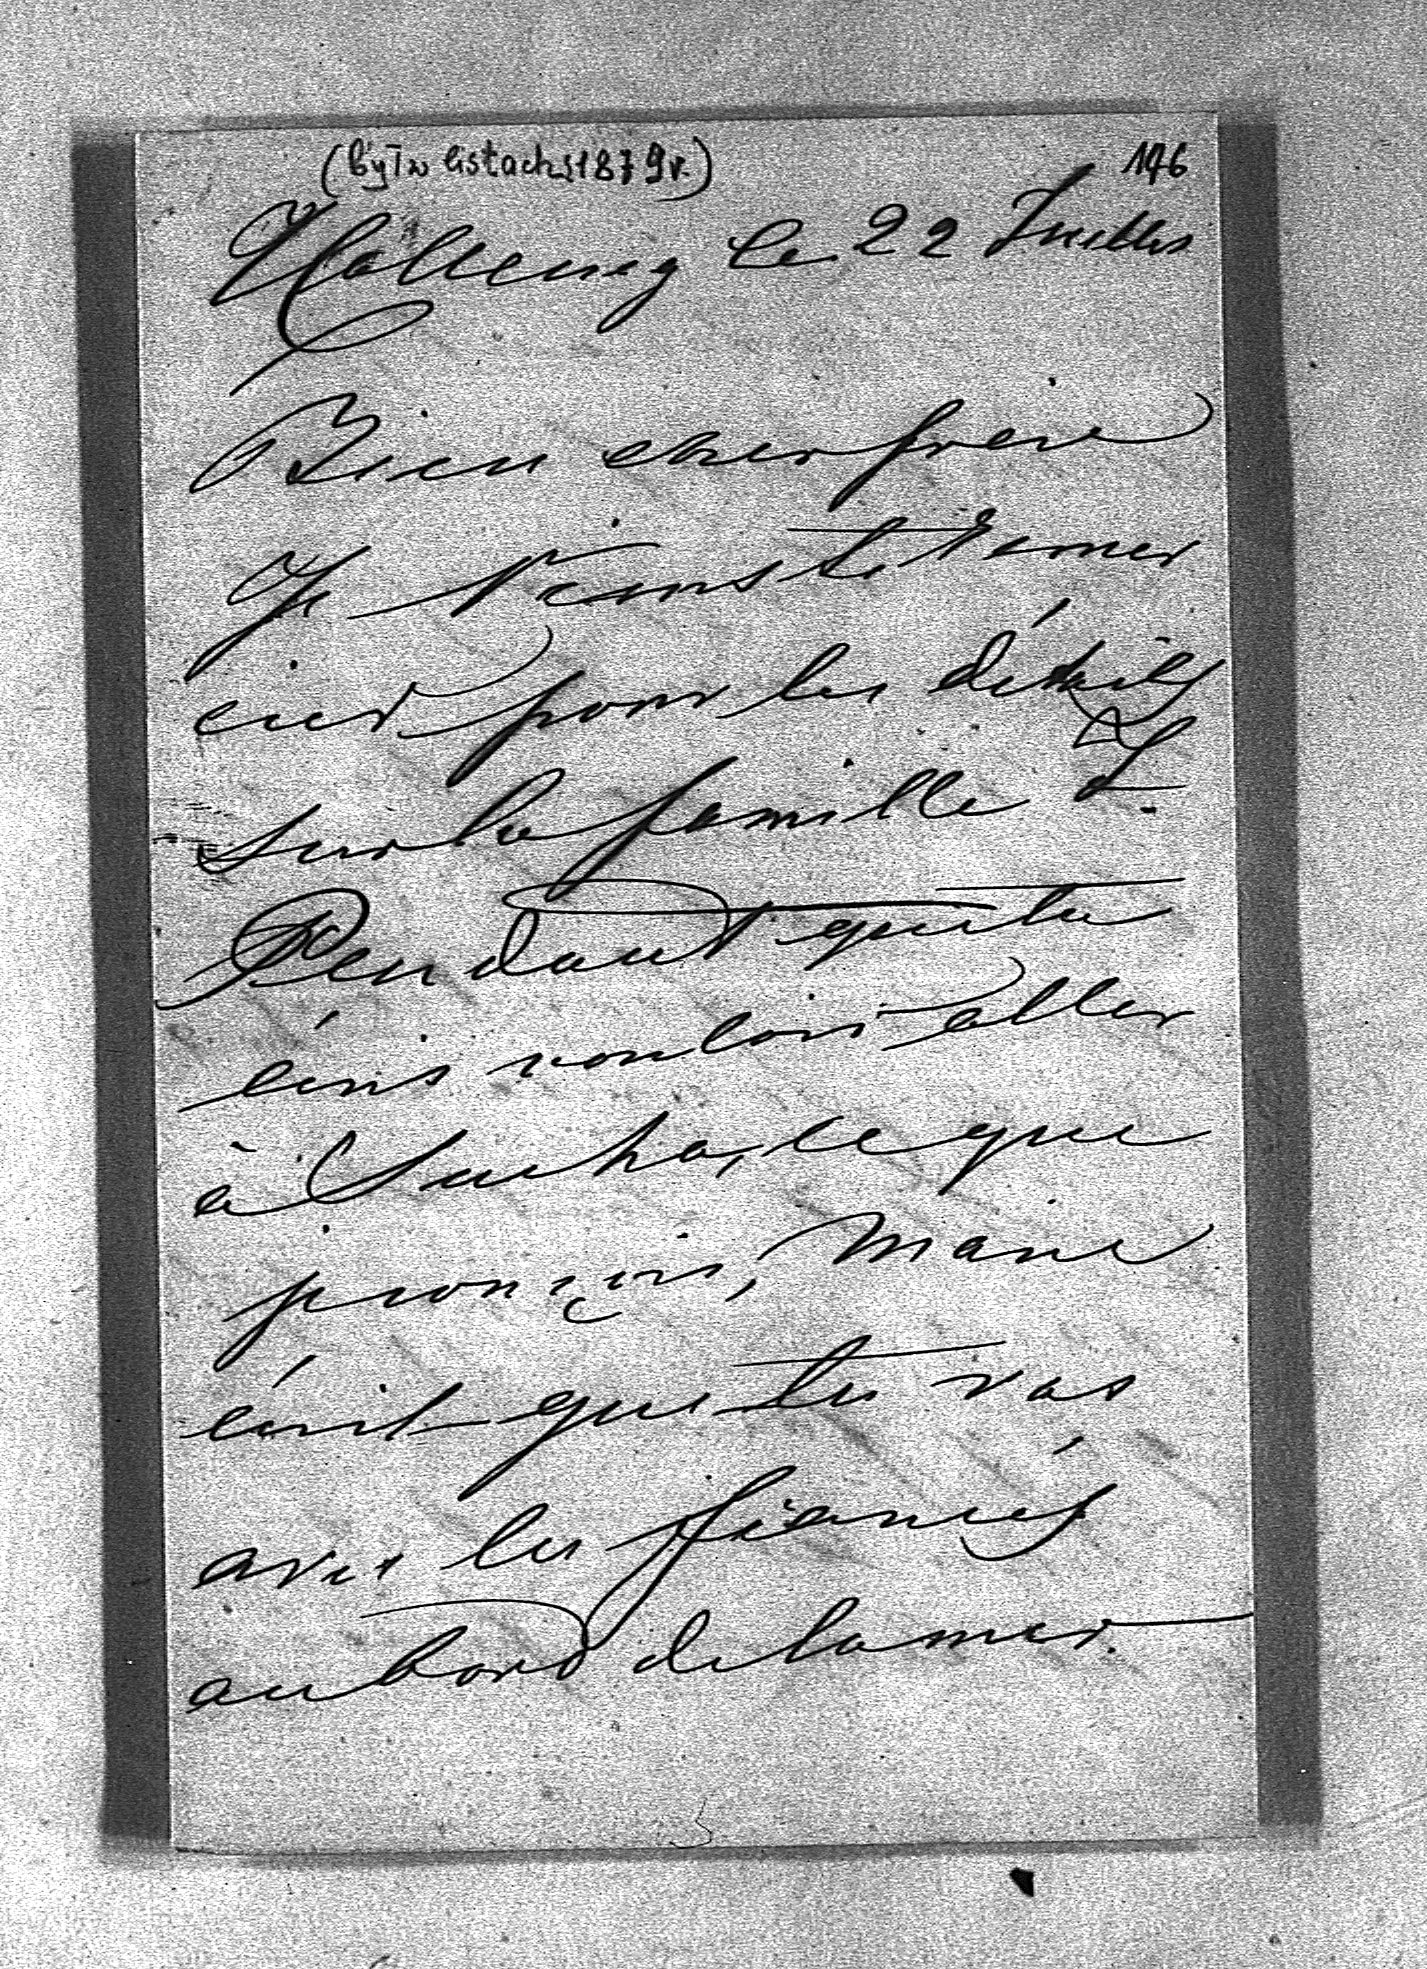 (był w listach z 1879 r.)
146
le 22 Juillet
Bien cher frère
Je viens te remer
cier pour les détails
sur la famille
Pendant que tu
écris vouloir aller
à Sucha, ce que
Marie
écrit que tu vas
avec les fiancés
au bord de la mer.